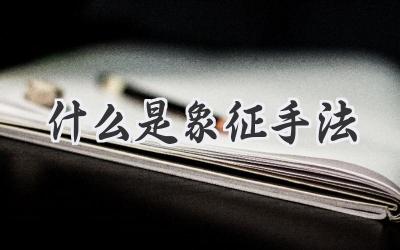 什么是象征手法